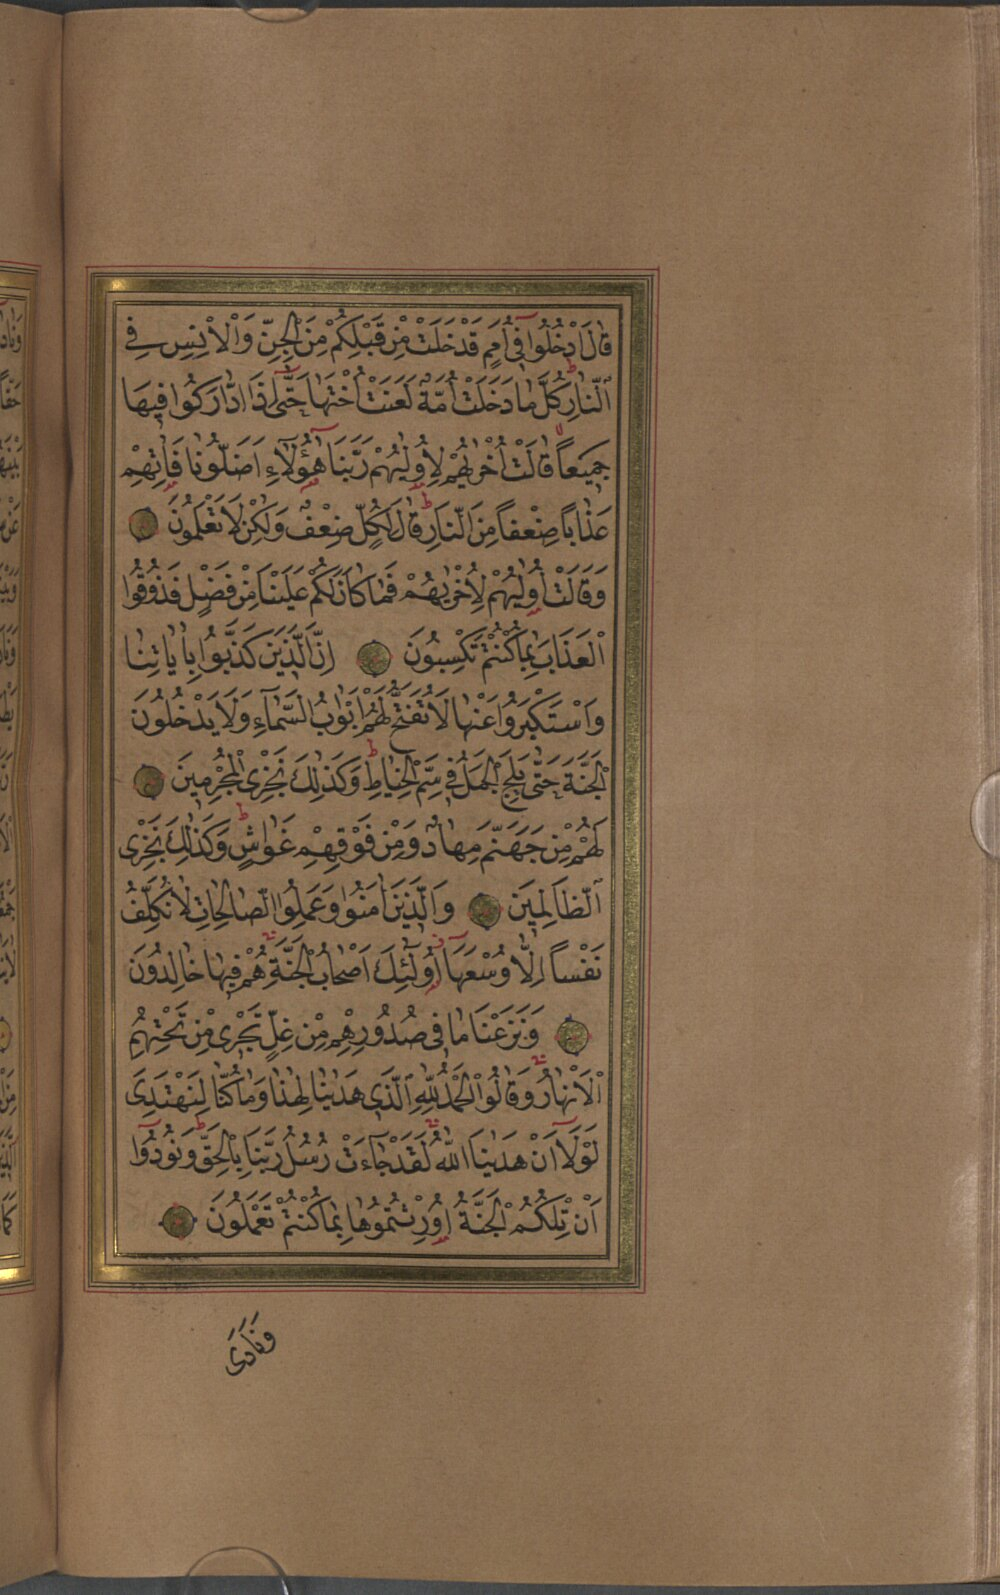 قَالَ ادْخُلُوا فٓى اُمَمٍ قَدْ خَلَتْ مِنْ قَبْلِكُمْ مِنَ الْجِنِّ وَالْاِنْسِ فِى
النَّارِ كُلَّمَا دَخَلَتْ اُمَّةٌ لَعَنَتْ اُخْتَهَا حَتّٰٓى اِذَا ادَّارَكُوا فِيهَا
جَمِيعًا قَالَتْ اُخْرٰيهُمْ لِاُو۫لٰيهُمْ رَبَّنَا هٰٓؤُ۬لَٓاءِ اَضَلُّونَا فَاٰتِهِمْ
عَذَابًا ضِعْفًا مِنَ النَّارِ ط قَالَ لِكُلٍّ ضِعْفٌ وَلٰكِنْ لَا تَعْلَمُونَ
وَقَالَتْ اُو۫لٰيهُمْ لِاُخْرٰيهُمْ فَمَا كَانَ لَكُمْ عَلَيْنَا مِنْ فَضْلٍ فَذُوقُوا
الْعَذَابَ بِمَا كُنْتُمْ تَكْسِبُونَ اِنَّ الَّذِينَ كَذَّبُوا بِاٰيَاتِنَا
وَاسْتَكْبَرُوا عَنْهَا لَا تُفَتَّحُ لَهُمْ اَبْوَابُ السَّمَٓاءِ وَلَا يَدْخُلُونَ
الْجَنَّةَ حَتّٰى يَلِجَ الْجَمَلُ فِى سَمِّ الْخِيَاطِ ط وَكَذٰلِكَ نَجْزِى الْمُجْرِمِينَ
لَهُمْ مِنْ جَهَنَّمَ مِهَادٌ وَمِنْ فَوْقِهِمْ غَوَاشٍ ط وَكَذٰلِكَ نَجْزِى
الظَّالِمِينَ وَالَّذِينَ اٰمَنُوا وَعَمِلُوا الصَّالِحَاتِ لَا نُكَلِّفُ
نَفْسًا اِلَّا وُسْعَهَٓا اُو۬لٰٓئِكَ اَصْحَابُ الْجَنَّةِ هُمْ فِيهَا خَالِدُونَ
وَنَزَعْنَا مَا فِى صُدُورِهِمْ مِنْ غِلٍّ تَجْرِى مِنْ تَحْتِهِمُ
الْاَنْهَارُ وَقَالُوا الْحَمْدُ لِلّٰهِ الَّذِى هَدٰينَا لِهٰذَا وَمَا كُنَّا لِنَهْتَدِىَ
لَوْلَٓا اَنْ هَدٰينَا اللّٰهُ لَقَدْ جَٓاءَتْ رُسُلُ رَبِّنَا بِالْحَقِّ ط وَنُودُٓوا
اَنْ تِلْكُمُ الْجَنَّةُ اُو۫رِثْتُمُوهَا بِمَا كُنْتُمْ تَعْمَلُونَ
وَنَادَى